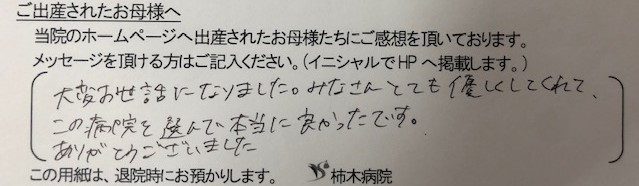 ご出産されたお母様へ
当院のホームページへ出産されたお母様たちにご感想を頂いております。
メッセージを頂ける方はご記入ください。(イニシャルでHPへ掲載します。)
大変お世話になりました。みなさんとても優しくしてくれて、
この病院を選んで本当に良かったです。
ありがとうございました
この用紙は、退院時にお預かりします。 柿木病院